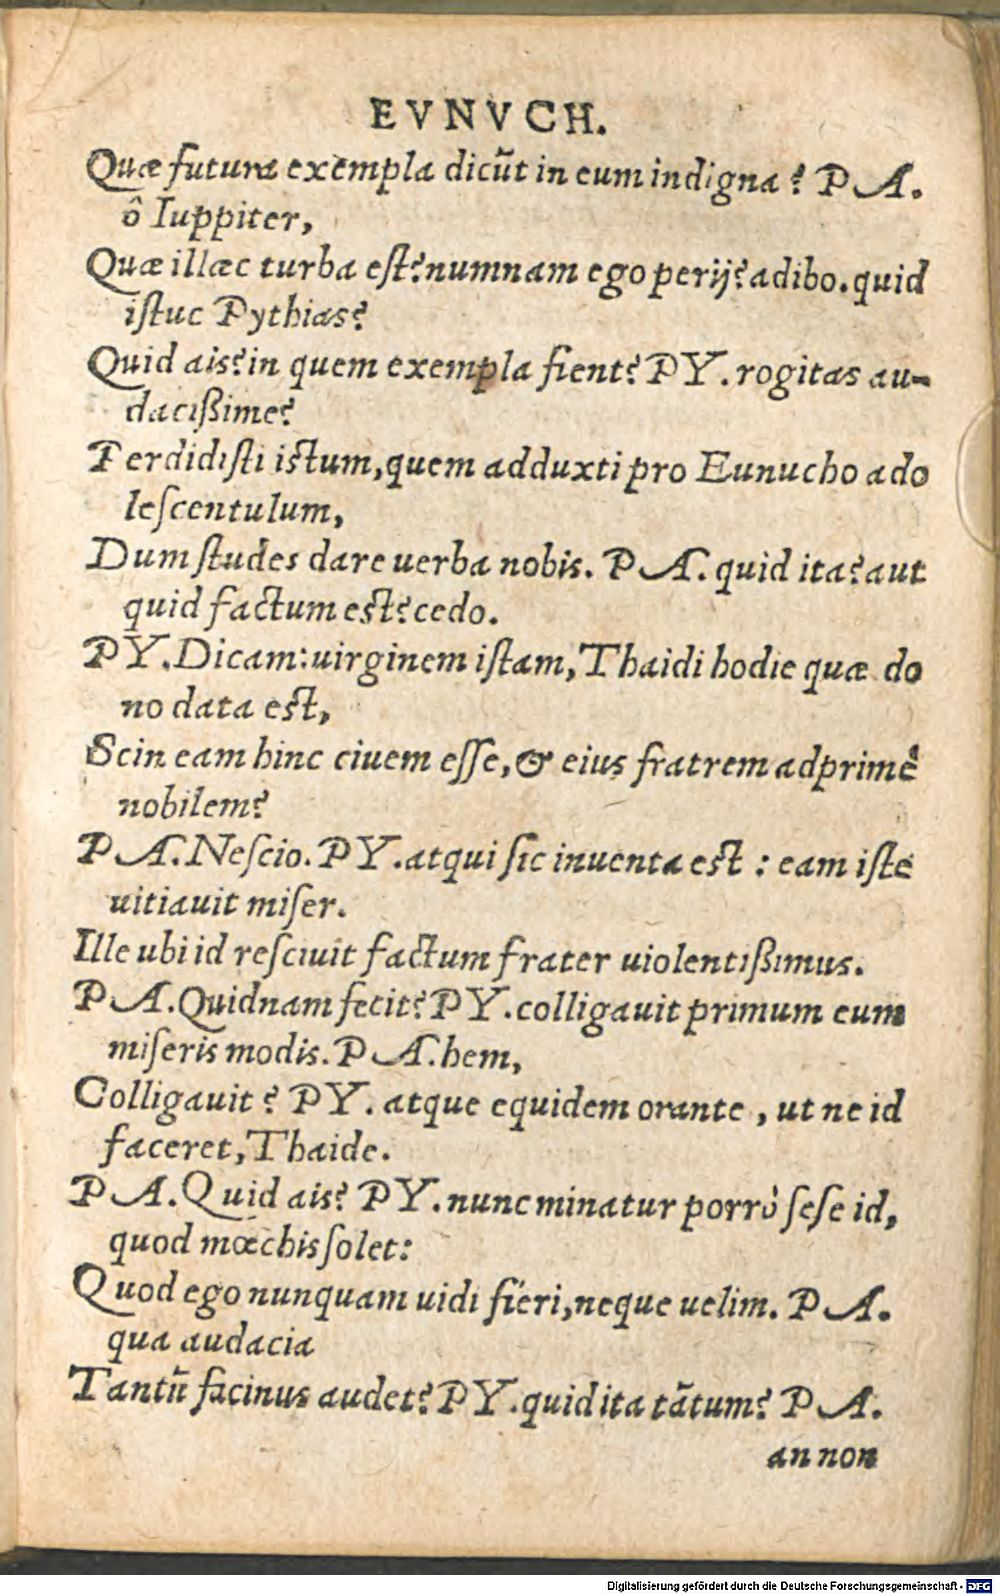 EVNVCH.
Quæ futura exempla dicũt in eum indigna? PA.
ô Iuppiter,
Quæ illæc turba est? numnam ego perij? adibo. quid
istuc Pythias?
Quid ais? in quem exempla fient? PY. rogitas au-
dacißime?
Perdidisti istum, quem adduxti pro Eunucho ado
lescentulum,
Dum studes dare uerba nobis. PA. quid ita? aut
quid factum est? cedo.
PY. Dicam: uirginem istam, Thaidi hodie quæ do
no data est,
Scin eam hinc ciuem esse, & eius fratrem adprimè
nobilem?
PA. Nescio. PY. atqui sic inuenta est : eam iste
uitiauit miser.
Ille ubi id resciuit factum frater uiolentißimus.
PA. Quidnam fecit? PY. colligauit primum eum
miseris modis. PA. hem,
Colligauit? PY. atque equidem orante, ut ne id
faceret, Thaide.
PA. Quid ais? PY. nunc minatur porrò sese id,
quod mœchis solet:
Quod ego nunquam uidi fieri, neque uelim. PA.
qua audacia
Tantũ facinus audet? PY. quid ita tãtum? PA.
an non
Digitalisierung gefördert durch die Deutsche Forschungsgemeinschaft - DFG